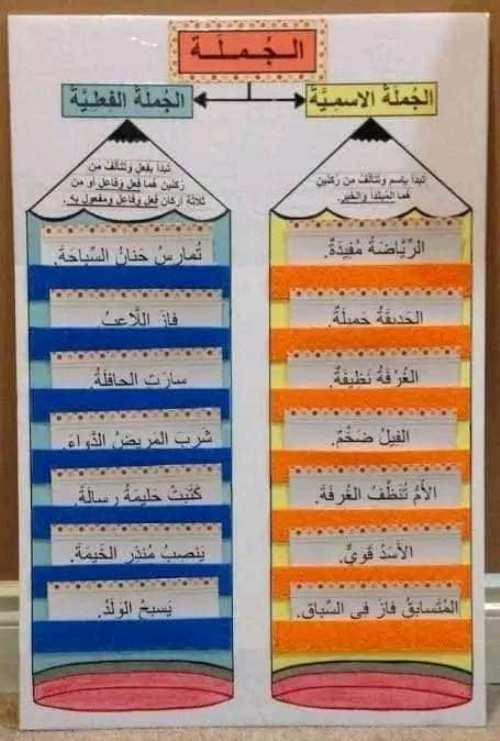 الجُملَة
الجُملَةُ الاسميَّة
تبدأ باسم وتتألف من ركنين
هما المبتدأ والخبر.
الرِّيَاضَةُ مُفيدَةٌ.
الحَديقَةُ جَميلَةٌ.
الغُرفَةُ نَظيفَةٌ.
الفيلُ ضَخْمٌ.
الأُمُّ تُنَظِّفُ الغُرفَةَ.
الأَسَدُ قَويٌّ.
المُتَسابِقُ فازَ في السِّباقِ.
الجُملَةُ الفِعليَّة
تبدأ بفعل وتتألف من
ركنين هما فعل وفاعل أو من
ثلاثة أركان فعل وفاعل ومفعول به.
تُمارِسُ حَنانُ السِّباحَةَ.
فازَ اللَّاعبُ
سارَتِ الحافِلَةُ
شَرِبَ المَريضُ الدَّواءَ
كَتَبَتْ حَليمَةُ رِسالَةً.
يَنصِبُ مُنذِر الخَيمَةَ.
يَسبحُ الوَلَدُ.